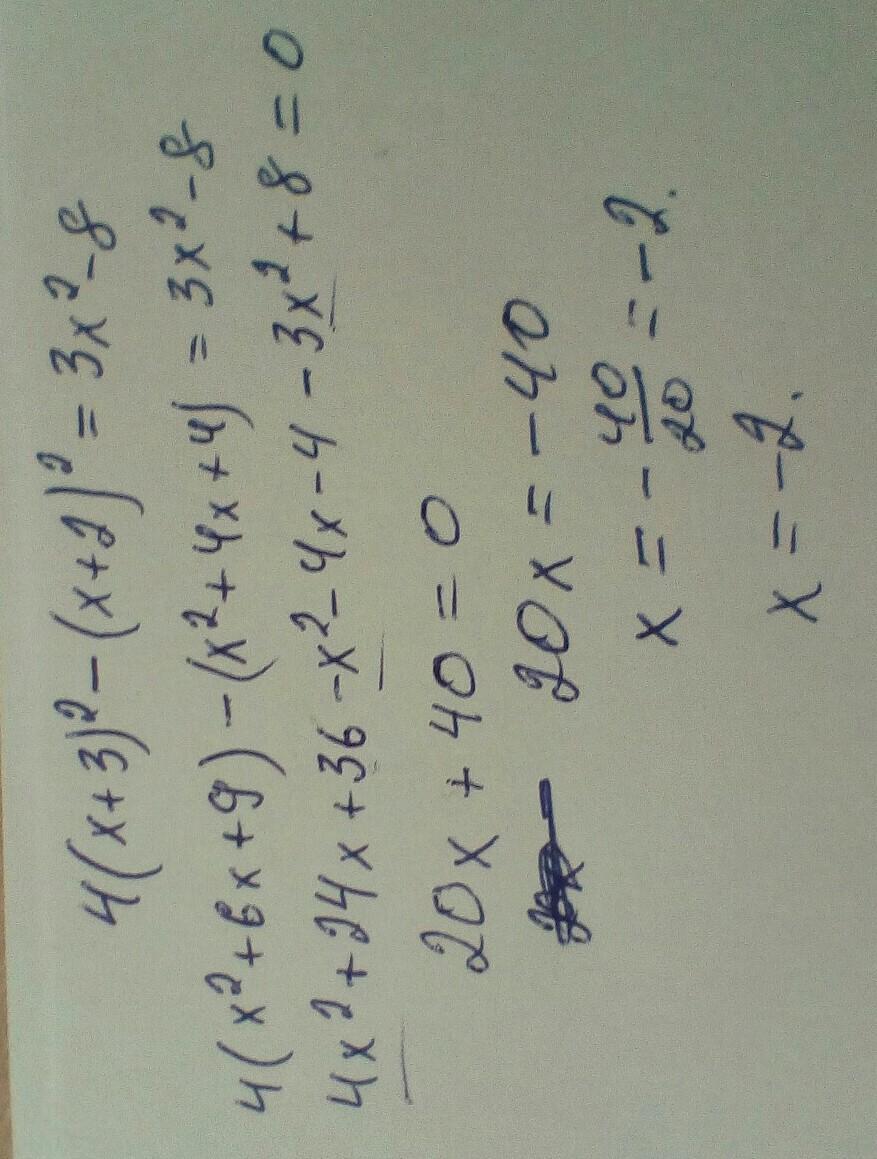 4(x+3)²-(x+2)²=3x²-8
4(x²+6x+9)-(x²+4x+4)=3x²-8
4x²+24x+36-x²-4x-4-3x²+8=0
20x+40=0
20x=-40
x=-40/20=-2.
x=-2.